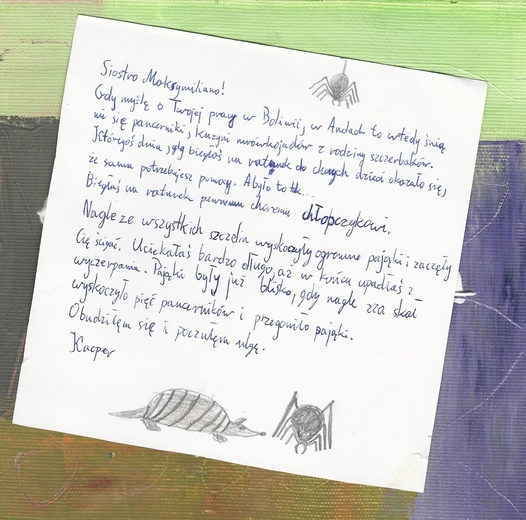 Siostro Moksymiliano!
Gdy myślę o Twojej pracy w Boliwii, w Andach to wtedy śnią
mi się pancerniki, kuzyni mrówkojadów z rodziny szczerbaków.
Któregoś dnia, gdy biegłaś na ratunek do chorych dzieci okazało się,
że sama potrzebujesz pomocy. A było to tak...
Biegłaś na ratunek pewnemu choremu chłopczykowi.
Nagle ze wszystkich szczelin wyskoczyły ogromne pająki i zaczęły
Cię ścigać. Uciekałaś bardzo długo, aż w końcu upadłaś z
wyczerpania. Pająki były już blisko, gdy nagle zza skał
wyskoczyło pięć pancerników i przegoniło pająki.
Obudziłem się i poczułem ulgę.
Kacper